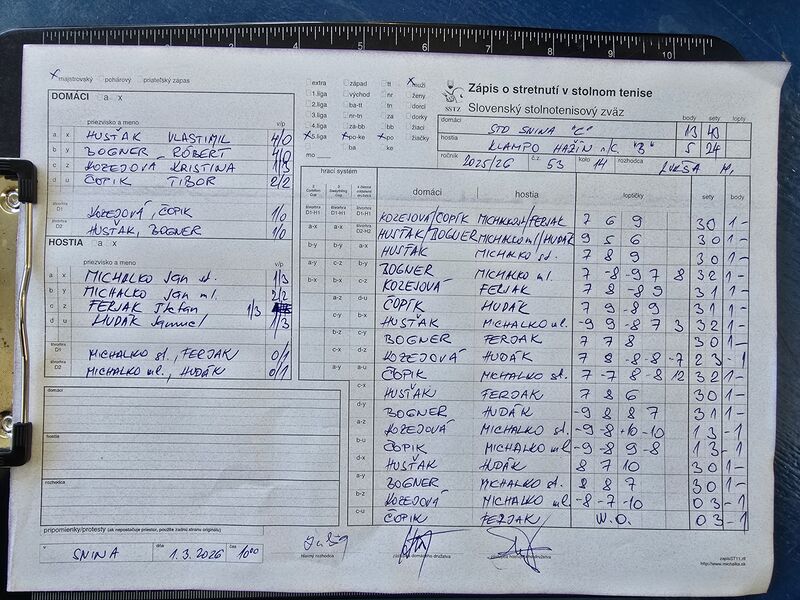 x majstrovský pohárový priateľský zápas
DOMÁCI a x
priezvisko a meno v/p
a x HUSŤÁK VLASTIMIL 4/0
b y BOGNER RÓBERT 4/0
c z KOZEJOVÁ KRISTINA 1/3
d u ČOPIK TIBOR 2/2
štvorhra D1 KOZEJOVÁ, ČOPIK 1/0
štvorhra D2 HUSŤÁK, BOGNER 1/0
HOSTIA a x
priezvisko a meno v/p
a x MICHALKO Ján st. 1/3
b y MICHALKO Ján ml. 2/2
c z FERJAK Štefan 1/3
d u HUDÁK Samuel 1/3
štvorhra D1 MICHALKO st., FERJAK 0/1
štvorhra D2 MICHALKO ml., HUDÁK 0/1
domáci
hostia
rozhodca
pripomienky/protesty (ak nepostačuje priestor, použite zadnú stranu originálu)
v SNINA dňa 1.3.2026 čas 10:00
extra západ tt x muži
1.liga východ nr ženy
2.liga ba-tt tn dorci
3.liga nr-tn za dorky
4.liga za-bb bb žiaci
x 5.liga x po-ke x po žiačky
ba ke
mo
SSTZ
Zápis o stretnutí v stolnom tenise
Slovenský stolnotenisový zväz
body sety lopty
domáci STO SNINA "C" 13 43
hostia KLAMPO HAŽÍN n/C. "B" 5 24
ročník 2025/26 č.z. 53 kolo 14 rozhodca LUKŠA M.
hrací systém
domáci hostia loptičky sety body
KOZEJOVÁ/ČOPIK MICHALKO st/FERJAK 7 6 9 3 0 1 -
HUSŤÁK/BOGNER MICHALKO ml/HUDÁK 9 5 6 3 0 1 -
HUSŤÁK MICHALKO st. 7 8 9 3 0 1 -
BOGNER MICHALKO ml. 7 -8 -9 7 8 3 2 1 -
KOZEJOVÁ FERJAK 7 8 -8 9 3 1 1 -
ČOPÍK HUDÁK 7 9 -8 9 3 1 1 -
HUSŤÁK MICHALKO ml. -9 9 -8 7 3 3 2 1 -
BOGNER FERJAK 7 7 8 3 0 1 -
KOZEJOVÁ HUDÁK 7 8 -8 -8 -7 2 3 - 1
ČOPIK MICHALKO st. 7 -7 8 -8 12 3 2 1 -
HUSŤÁK FERJAK 7 8 6 3 0 1 -
BOGNER HUDÁK -9 8 8 7 3 1 1 -
KOZEJOVÁ MICHALKO st. -9 -8 +10 -10 1 3 - 1
ČOPIK MICHALKO ml. -9 -8 9 -8 1 3 - 1
HUSŤÁK HUDÁK 8 7 10 3 0 1 -
BOGNER MICHALKO st. 8 8 7 3 0 1 -
KOZEJOVÁ MICHALKO ml. -8 -7 -10 0 3 - 1
ČOPIK FERJAK W.O. 0 3 - 1
hlavný rozhodca
zápisST11.rtf
http://www.michalka.sk